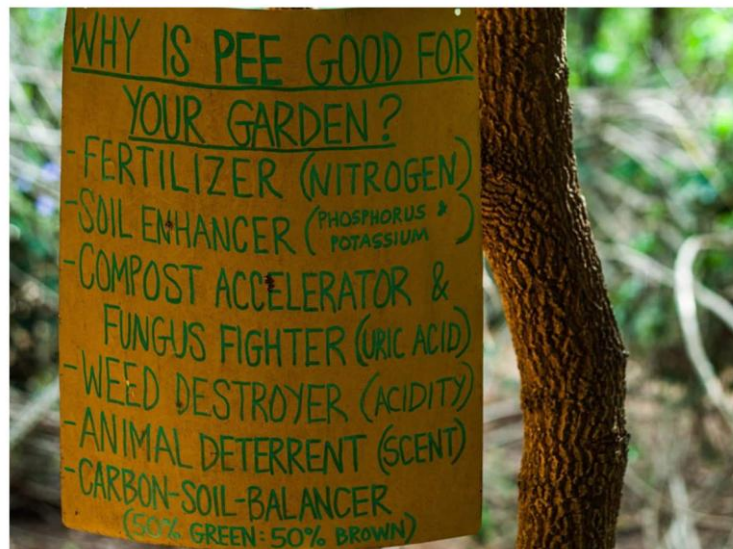 WHY IS PEE GOOD FOR
YOUR GARDEN?
-FERTILIZER (NITROGEN)
-SOIL ENHANCER (PHOSPHORUS &
POTASSIUM)
-COMPOST ACCELERATOR &
FUNGUS FIGHTER (URIC ACID)
-WEED DESTROYER (ACIDITY)
-ANIMAL DETERRENT (SCENT)
-CARBON-SOIL-BALANCER
(50% GREEN: 50% BROWN)